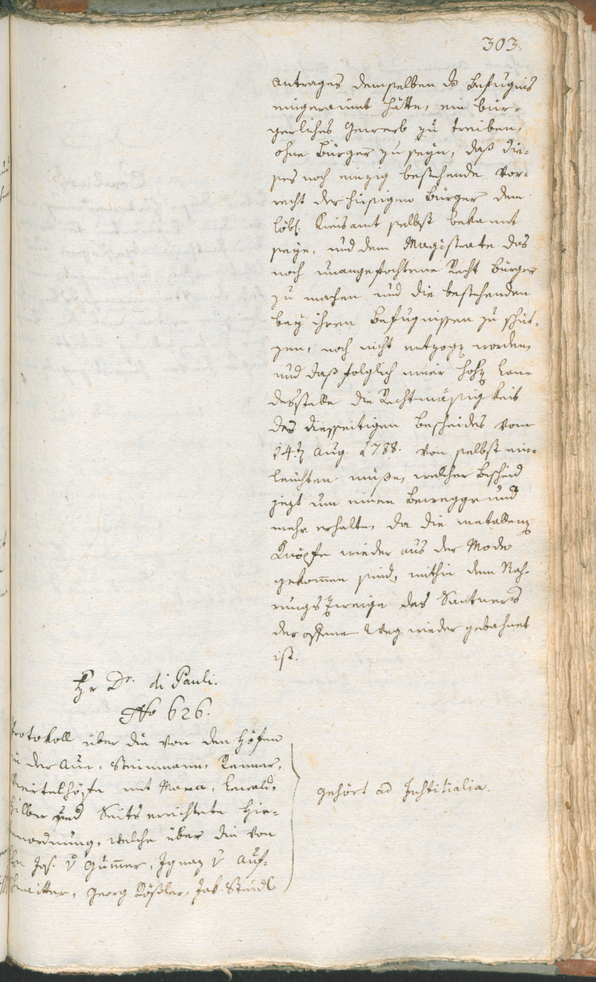 303.
antrages demselben d͞s Befugnis
eingeraumt hätte, ein bür-
gerliches Gewerb zu treiben,
ohne Bürger zu seyn, daß die-
ses noch einzig bestehende Vor-
recht der hiesigen Bürger dem
löbl. Kreisamt selbst bekannt
seye, und dem Magistrate das
noch unangefochtene Recht Bürger
zu machen und die bestehenden
bey ihren Befugnissen zu schüt-
zen, noch nicht entzogen worden,
und daß folglich einer hohen Lan-
desstelle die Rechtmäßigkeit
des diesseitigen Bescheides vom
14.t Aug. 1788. von selbst ein-
leuchten müße, welcher Bescheid
jezt um einen Beweggrund
mehr erhalte, da die metallenen
Knöpfe wieder aus der Mode
gekommen sind, mithin dem Nah-
rungszweige des Santners
der offene Weg wieder gebahnet
ist.
Hr Dr. di Pauli.
No 626.
Protokoll über die von den Höfen
in der Aue, Steinmann, Renner,
Viertelhöfe mit
und Seits errichtete Hir-
tenordnung, welche über die von
Jos. v Gummer, Ignaz v Auf-
schnaitter, Georg Rößler, Jak.
gehört ad Justitialia.